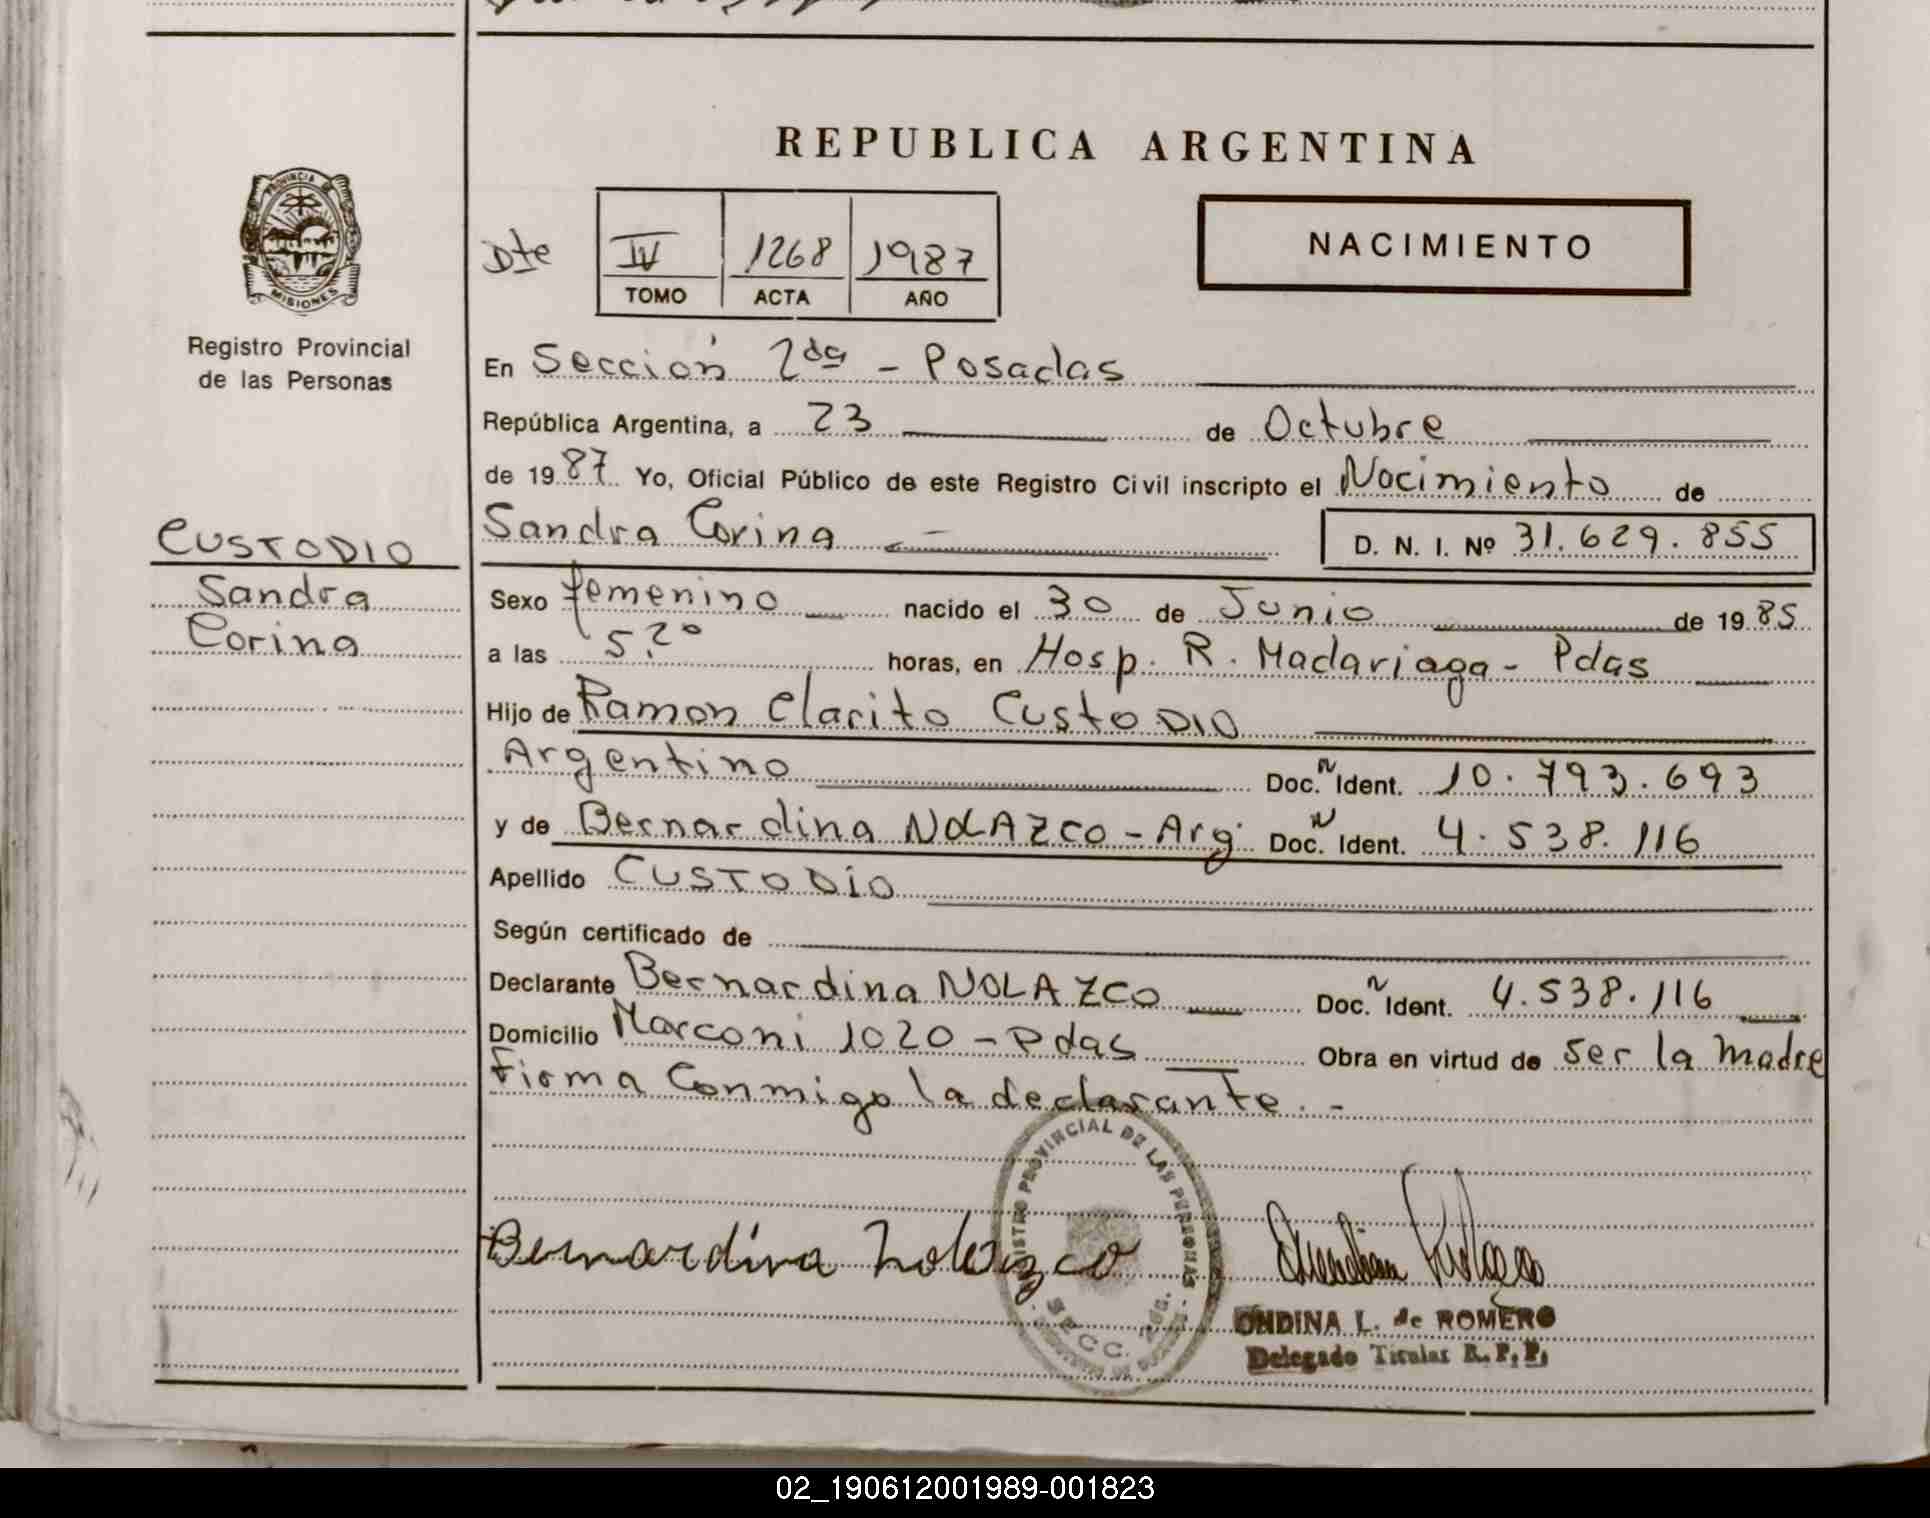 REPUBLICA ARGENTINA
PROVINCIA DE
MISIONES
Registro Provincial
de las Personas
Dte
IV 1268 1987
TOMO ACTA AÑO
NACIMIENTO
En Sección 2da - Posadas
República Argentina, a 23 de Octubre
de 1987 Yo, Oficial Público de este Registro Civil inscripto el Nacimiento de
Sandra Corina D. N. I. Nº 31.629.855
CUSTODIO
Sandra
Corina
Sexo femenino nacido el 30 de Junio de 1985
a las horas, en Hosp. R. Madariaga - Pdas
Hijo de Ramon Clarito CUSTODIO
Argentino Doc. N Ident. 10.793.693
y de Bernardina NOLAZCO - Arg. Doc. N Ident. 4.538.116
Apellido CUSTODIO
Según certificado de
Declarante Bernardina NOLAZCO Doc. N Ident. 4.538.116
Domicilio Marconi 1020 - Pdas Obra en virtud de ser la madre
Firma Conmigo la declarante. -
REGISTRO PROVINCIAL DE LAS PERSONAS
SECC. 2da.
Bernardina Nolazco
ONDINA L. de ROMERO
Delegado Titular R. P. P.
02_190612001989-001823